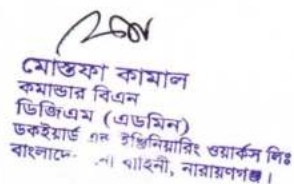 মোস্তফা কামাল
কমান্ডার বিএন
ডিজিএম (এডমিন)
ডকইয়ার্ড এন্ড ইঞ্জিনিয়ারিং ওয়ার্কস লিঃ
বাংলাদে বাহিনী, নারায়ণগঞ্জ।